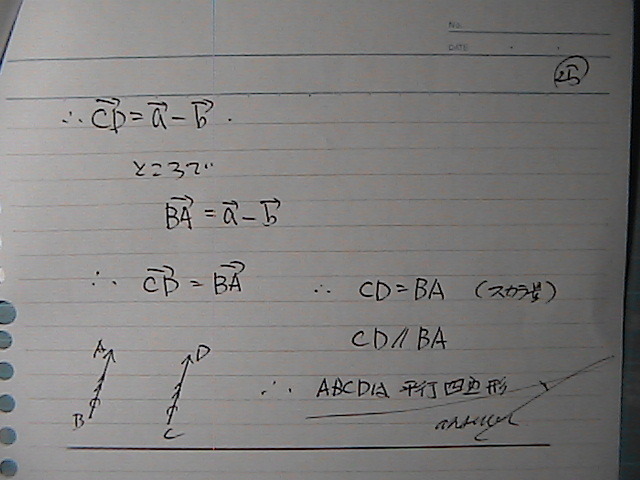 No.
DATE
25
∴ CD→ = a→ − b→.
ところで
BA→ = a→ − b→
∴ CD→ = BA→ ∴ CD = BA (スカラ量)
CD // BA
A D
∴ ABCDは 平行四辺形
B C
answer